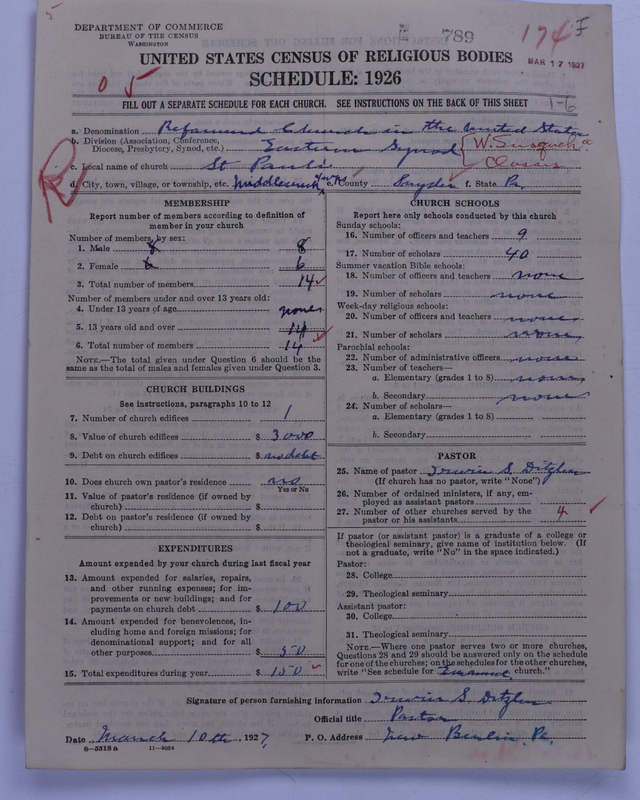 5
DEPARTMENT OF COMMERCE
BUREAU OF THE CENSUS
WASHINGTON
789
174
MAR 17 1927
UNITED STATES CENSUS OF RELIGIOUS BODIES
SCHEDULE: 1926
0 5
FILL OUT A SEPARATE SCHEDULE FOR EACH CHURCH. SEE INSTRUCTIONS ON THE BACK OF THIS SHEET
1-6
a. Denomination Reformed Church in the United States
b. Division (Association, Conference, Diocese, Presbytery, Synod, etc.) Eastern Synod
Classis
c. Local name of church St Pauls
d. City, town, village, or township, etc. Middlecreek e. County Snyder f. State Pa.
MEMBERSHIP
Report number of members according to definition of member in your church
Number of members, by sex:
1. Male 8 8
2. Female 6 6
3. Total number of members 14
Number of members under and over 13 years old:
4. Under 13 years of age none
5. 13 years old and over 14
6. Total number of members 14
NOTE.—The total given under Question 6 should be the same as the total of males and females given under Question 3.
CHURCH BUILDINGS
See instructions, paragraphs 10 to 12
7. Number of church edifices 1
8. Value of church edifices $ 3000
9. Debt on church edifices $ no debt
10. Does church own pastor's residence? no
Yes or No
11. Value of pastor's residence (if owned by church) $
12. Debt on pastor's residence (if owned by church) $
EXPENDITURES
Amount expended by your church during last fiscal year
13. Amount expended for salaries, repairs, and other running expenses; for improvements or new buildings; and for payments on church debt $ 100
14. Amount expended for benevolences, including home and foreign missions; for denominational support; and for all other purposes $ 50
15. Total expenditures during year $ 150
CHURCH SCHOOLS
Report here only schools conducted by this church
Sunday schools:
16. Number of officers and teachers 9
17. Number of scholars 40
Summer vacation Bible schools:
18. Number of officers and teachers none
19. Number of scholars none
Week-day religious schools:
20. Number of officers and teachers none
21. Number of scholars none
Parochial schools:
22. Number of administrative officers none
23. Number of teachers—
a. Elementary (grades 1 to 8) none
b. Secondary none
24. Number of scholars—
a. Elementary (grades 1 to 8)
b. Secondary
PASTOR
25. Name of pastor Irwin S. Ditzler
(If church has no pastor, write "None")
26. Number of ordained ministers, if any, employed as assistant pastors
27. Number of other churches served by the pastor or his assistants 4
If pastor (or assistant pastor) is a graduate of a college or theological seminary, give name of institution below. (If not a graduate, write "No" in the space indicated.)
Pastor:
28. College
29. Theological seminary
Assistant pastor:
30. College
31. Theological seminary
NOTE.—Where one pastor serves two or more churches, Questions 28 and 29 should be answered only on the schedule for one of the churches; on the schedules for the other churches, write "See schedule for Emanuel church."
Signature of person furnishing information Irwin S. Ditzler
Official title Pastor
Date March 10th, 1927, P. O. Address New Berlin, Pa.
8—5318a 11—9024